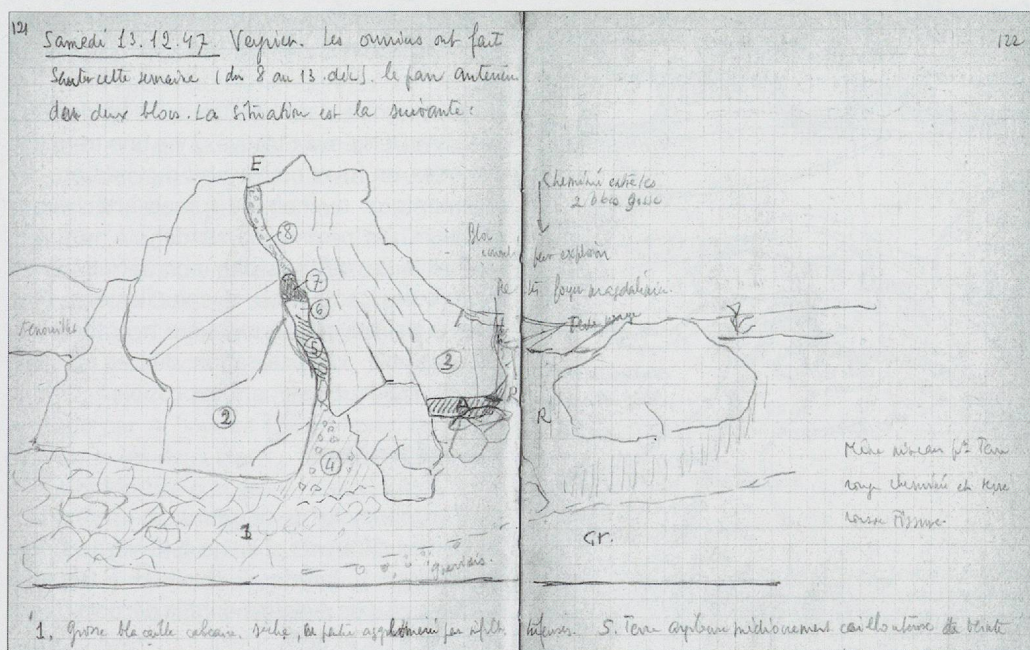 121
Samedi 13.12.47 Veyrier. Les ouvriers ont fait
Sauter cette semaine (du 8 au 13 déc). le pan antérieur
des deux blocs. La situation est la suivante:
E
8
7
6
5
3
A
R
2
4
1
122
Cheminée entre les
2 blocs
Bloc
par explosion
foyer magdalénien.
Terre rouge
R
Gr.
Même niveau pr Terre
rouge cheminée et terre
1, Grosse blocaille calcaire, sèche, en partie agglomérée par
5. Terre médiocrement caillouteuse de